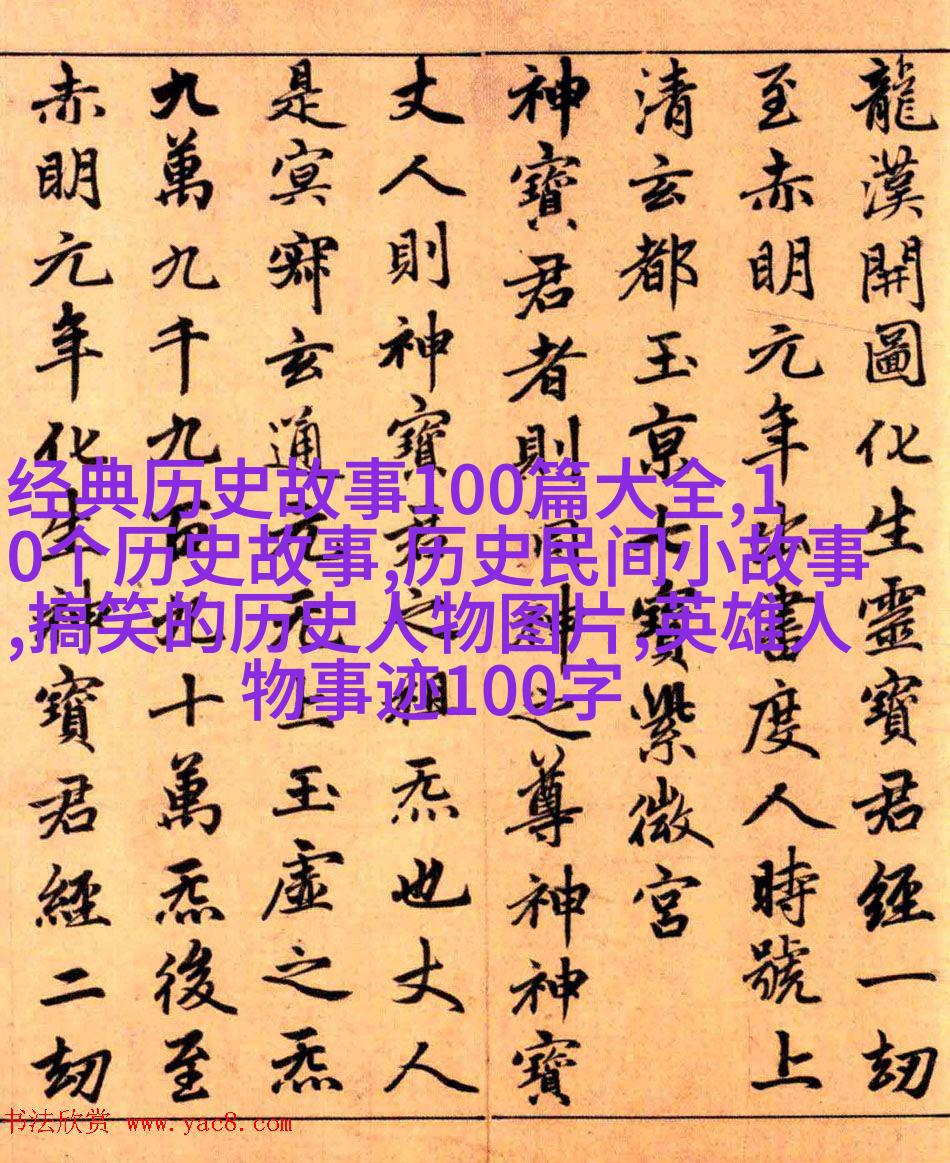 龍漢開圖化生靈寶君經一劫
至赤明元年出書度人時號上
清玄都玉京七寶紫微宮
神寶君者則洞神之尊神神寶
丈人則神寶君之祖炁也丈人
是冥寂玄通元无上玉虛之炁
九萬九千九百九十萬炁後至
赤明元年化生神寶君經二劫
经典历史故事100篇大全,1
0个历史故事,历史民间小故事
,搞笑的历史人物图片,英雄人
物事迹100字
书法欣赏 www.yac8.com